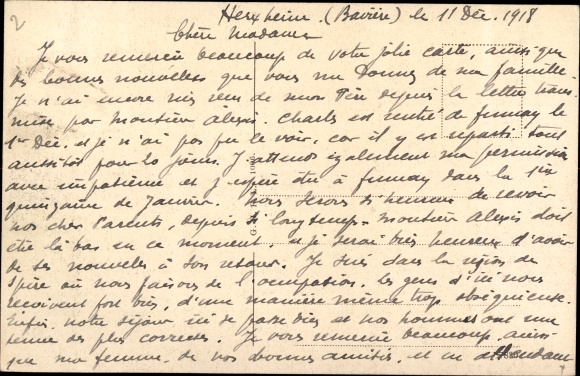 2
Herxheim (Bavière) le 11 Déc. 1918
Chère Madame
Je vous remercie beaucoup de votre jolie carte, ainsi que
des bonnes nouvelles que vous me donnez de ma famille.
Je n'ai encore rien reçu de mon Père depuis la lettre trans-
mise par Monsieur Alexis. Charles est rentré de Fumay le
1er Déc. et je n'ai pas pu le voir, car il y est reparti tout
aussitôt pour 20 jours. J'attends également ma permission
avec impatience et j'espère être à Fumay dans la 1ère
quinzaine de Janvier. Nous serons si heureux de revoir
nos cher Parents, depuis si longtemps. Monsieur Alexis doit
être là bas en ce moment, et je serai bien heureux d'avoir
de ses nouvelles à son retour. Je suis dans la région de
Spire où nous faisons de l'occupation, les gens d'ici nous
reçoivent fort bien, d'une manière même trop obséquieuse.
Enfin notre séjour ici se passe bien et nos hommes ont une
tenue des plus correctes. Je vous remercie beaucoup, ainsi
que ma femme, de vos bonnes amitiés, et en attendant